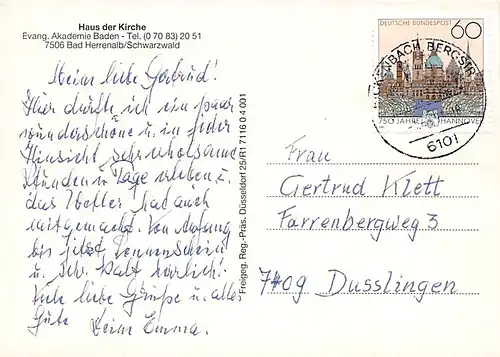 Haus der Kirche
Evang. Akademie Baden - Tel. (0 70 83) 20 51
7506 Bad Herrenalb/Schwarzwald
Meine liebe Gertrud!
Hier durfte ich ein paar
wunderschöne u. in jeder
Hinsicht sehr erholsame
Stunden u. Tage erleben u.
das Wetter hat auch
mitgemacht. Von Anfang
bis jetzt Sonnenschein
u. sehr kalt
Liebe Grüße u. alles
Gute Deine Emma.
Freigeg. Reg.-Präs. Düsseldorf 25/R1 7116 0 4 001
DEUTSCHE BUNDESPOST 60
750 JAHRE HANNOVER
BICKENBACH, BERGSTR
6101
Frau
Gertrud Klett
Farrenbergweg 3
7409 Dusslingen